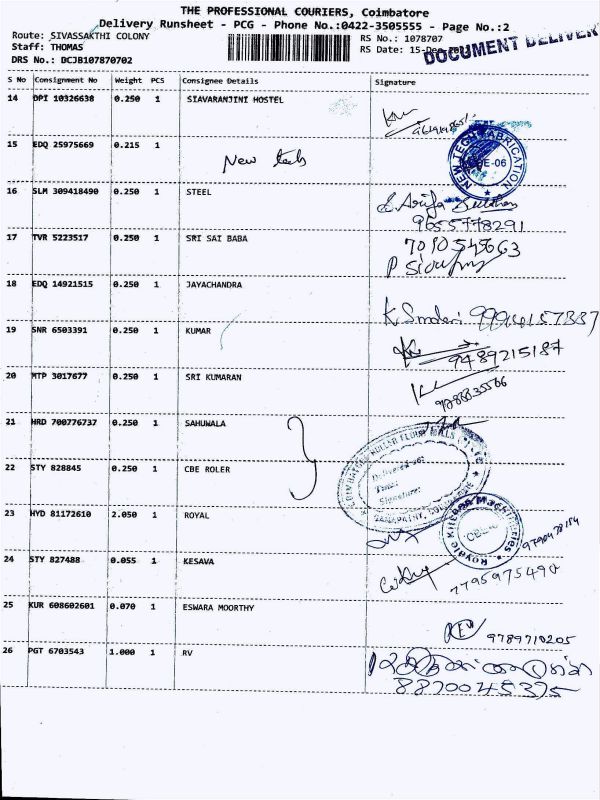 THE PROFESSIONAL COURIERS, Coimbatore
Delivery Runsheet - PCG - Phone No.:0422-3505555 - Page No.:2
Route: SIVASSAKTHI COLONY
RS No.: 1078707
Staff: THOMAS
RS Date: 15-De
DOCUMENT DELIVER
DRS No.: DCJB107870702
S No Consignment No Weight PCS Consignee Details Signature
14 DPI 10326638 0.250 1 SIAVARANJINI HOSTEL
15 EDQ 25975669 0.215 1
New tech
NEW TECH FABRICATION
CBE-06
16 SLM 309418490 0.250 1 STEEL
9655778291
17 TVR 5223517 0.250 1 SRI SAI BABA
18 EDQ 14921515 0.250 1 JAYACHANDRA
19 SNR 6503391 0.250 1 KUMAR
9489215187
20 MTP 3017677 0.250 1 SRI KUMARAN
21 HRD 700776737 0.250 1 SAHUWALA
22 STY 828845 0.250 1 CBE ROLER
COIMBATORE ROLLER FLOUR MILLS
Delivered on:
Time:
Signature:
23 HYD 81172610 2.050 1 ROYAL
24 STY 827488 0.055 1 KESAVA
7795975490
25 KUR 608602601 0.070 1 ESWARA MOORTHY
9789710205
26 PGT 6703543 1.000 1 RV
8870045375